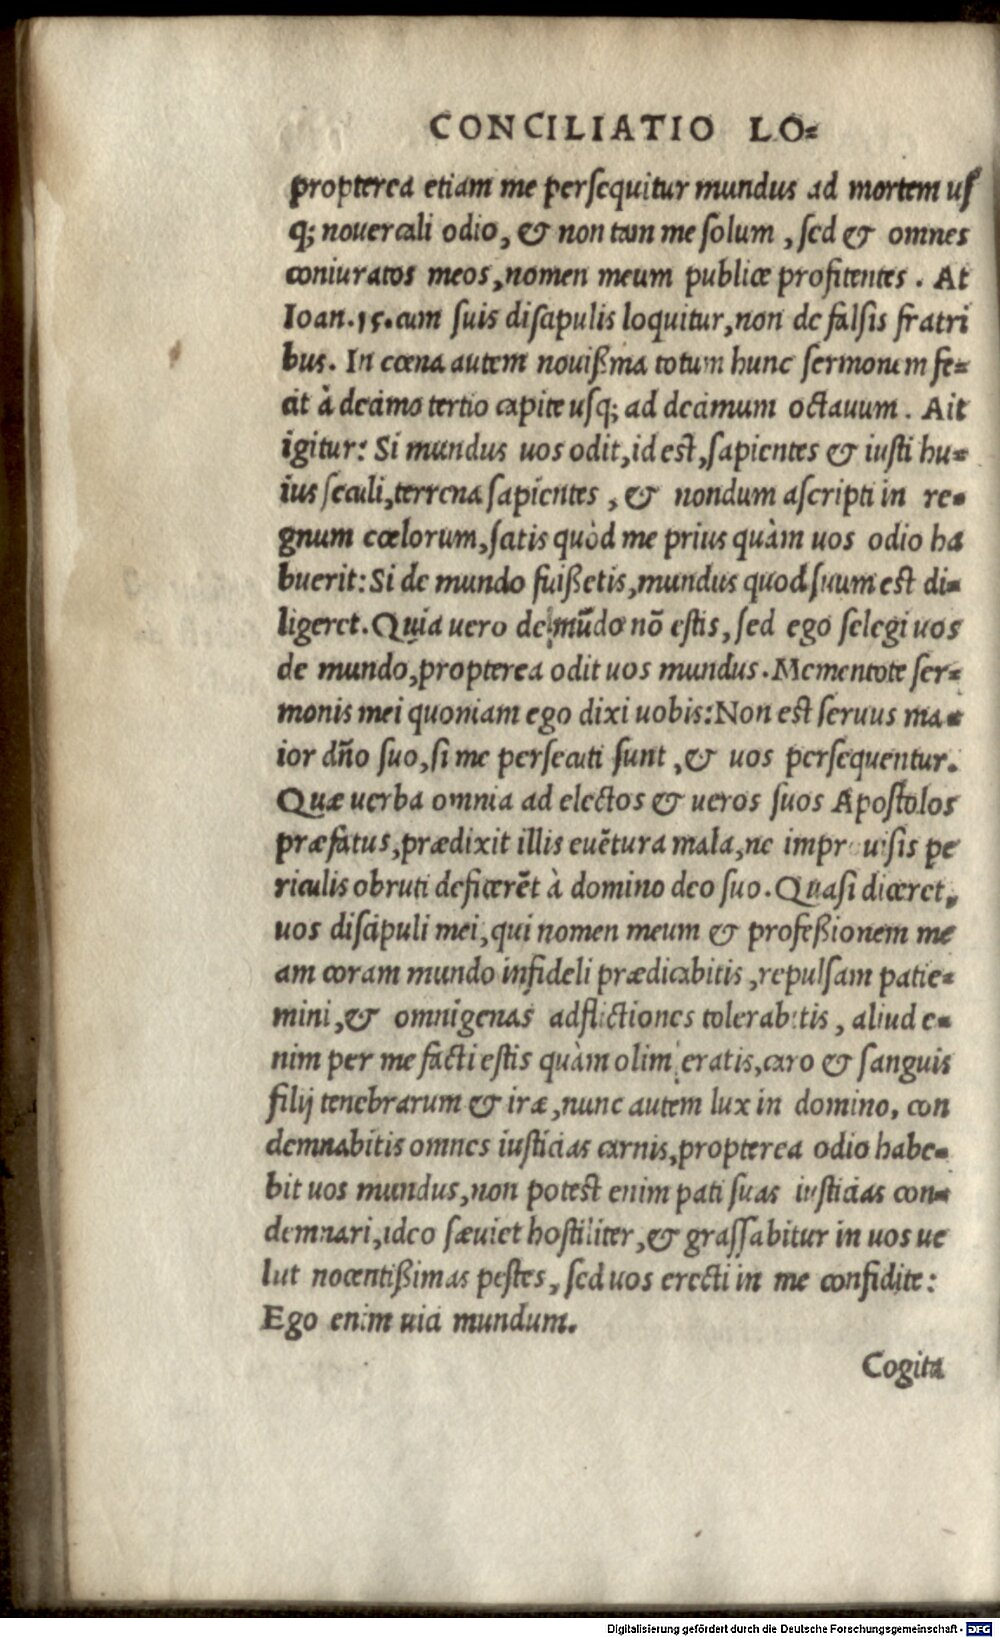 CONCILIATIO LO-
propterea etiam me persequitur mundus ad mortem uſ
q; nouercali odio, & non tam me ſolum, ſed & omnes
coniuratos meos, nomen meum publice profitentes. At
Ioan.15.cum ſuis diſcipulis loquitur, non de falſis fratri
bus. In cœna autem nouißima totum hunc ſermonem fe-
cit à decimo tertio capite uſq; ad decimum octauum. Ait
igitur: Si mundus uos odit, id est, ſapientes & iuſti hu-
ius ſeculi, terrena ſapientes, & nondum aſcripti in re-
gnum cœlorum, ſatis quòd me prius quàm uos odio ha
buerit: Si de mundo fuißetis, mundus quod ſuum est di-
ligeret. Quia uero de mũdo nõ eſtis, ſed ego ſelegi uos
de mundo, propterea odit uos mundus. Mementote ſer-
monis mei quoniam ego dixi uobis: Non est ſeruus ma-
ior dño ſuo, ſi me perſecuti ſunt, & uos perſequentur.
Quæ uerba omnia ad electos & ueros ſuos Apoſtolos
præfatus, prædixit illis euẽtura mala, ne impr uiſis pe
riculis obruti deficerẽt à domino deo ſuo. Quaſi diceret,
uos diſcipuli mei, qui nomen meum & profeßionem me
am coram mundo infideli prædicabitis, repulſam patie-
mini, & omnigenas adflictiones tolerabitis, aliud e-
nim per me facti eſtis quàm olim eratis, caro & ſanguis
filij tenebrarum & iræ, nunc autem lux in domino, con
demnabitis omnes iuſticias carnis, propterea odio habe-
bit uos mundus, non potest enim pati ſuas iuſticias con-
demnari, ideo ſæuiet hoſtiliter, & graſſabitur in uos ue
lut nocentißimas peſtes, ſed uos erecti in me confidite:
Ego enim uici mundum.
Cogita
Digitalisierung gefördert durch die Deutsche Forschungsgemeinschaft - DFG